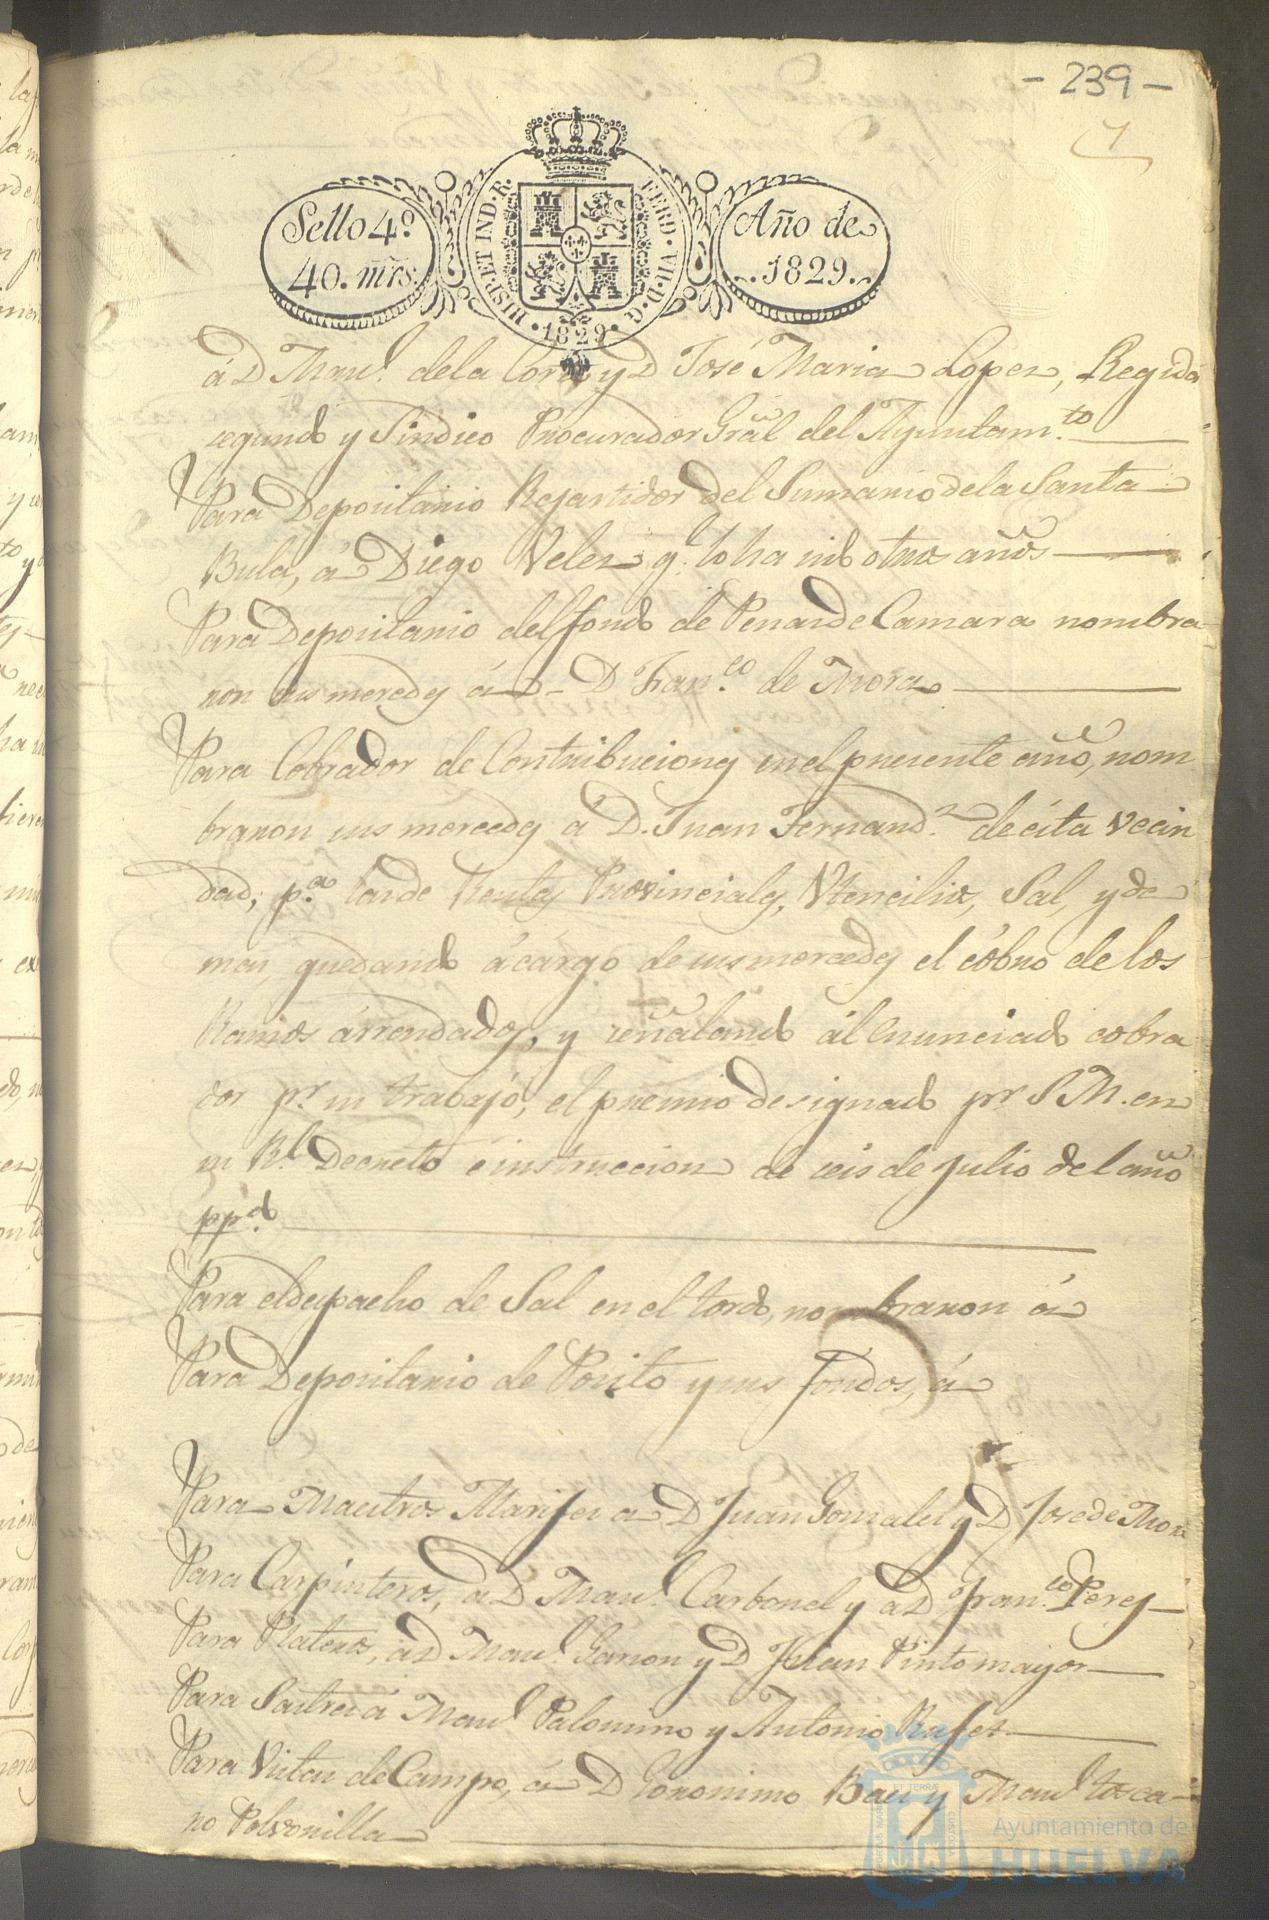 - 239 -
1
Sello 4º
40. mrs.
HISP. ET IND. R.
FERD. VII. D. G.
1829
Año de
1829.
á D Man.l dela Corte y D José Maria Lopez, Regidor
segundo y Sindico Procurador Gral del Ayuntam.to
Para Depositario Repartidor del Sumario dela Santa
Bula, á Diego Velez q.e lo ha sido otros años
Para Depositario del fondo de Penas de Camara nombra-
ron sus mercedes á D- D Fran.co de Mora
Para Cobrador de Contribuciones en el presente año, nom
braron sus mercedes á D. Juan Fernand.z de esta vecin
dad; p.a las de Rentas Provinciales, Utencilios, Sal, y de
mas, quedando á cargo de sus mercedes el cobro de los
Ramos árrendados, y señalando ál enunciado cobra
dor p.r su trabajo, el premio designado p.r S. M. en
su R.l Decreto é instruccion de seis de Julio del año
pp.do
Para el despacho de Sal en el tordo, nombraron á
Para Depositario de Posito y sus fondos, á
Para Maestros Alarifes a D Juan Gonzales y D Jose de Mora
Para Carpinteros, a D Man.l Carbonel y a D Fran.co Peres
Para Plateros, a D Man.l Garzon y D Julian Pinto mayor
Para Sastres á Man.l Palomino y Antonio Rufet
Para Vistas de Campo, á D Goronimo Bas y Man.l tosca-
no Polvorilla
Ayuntamiento de
HUELVA